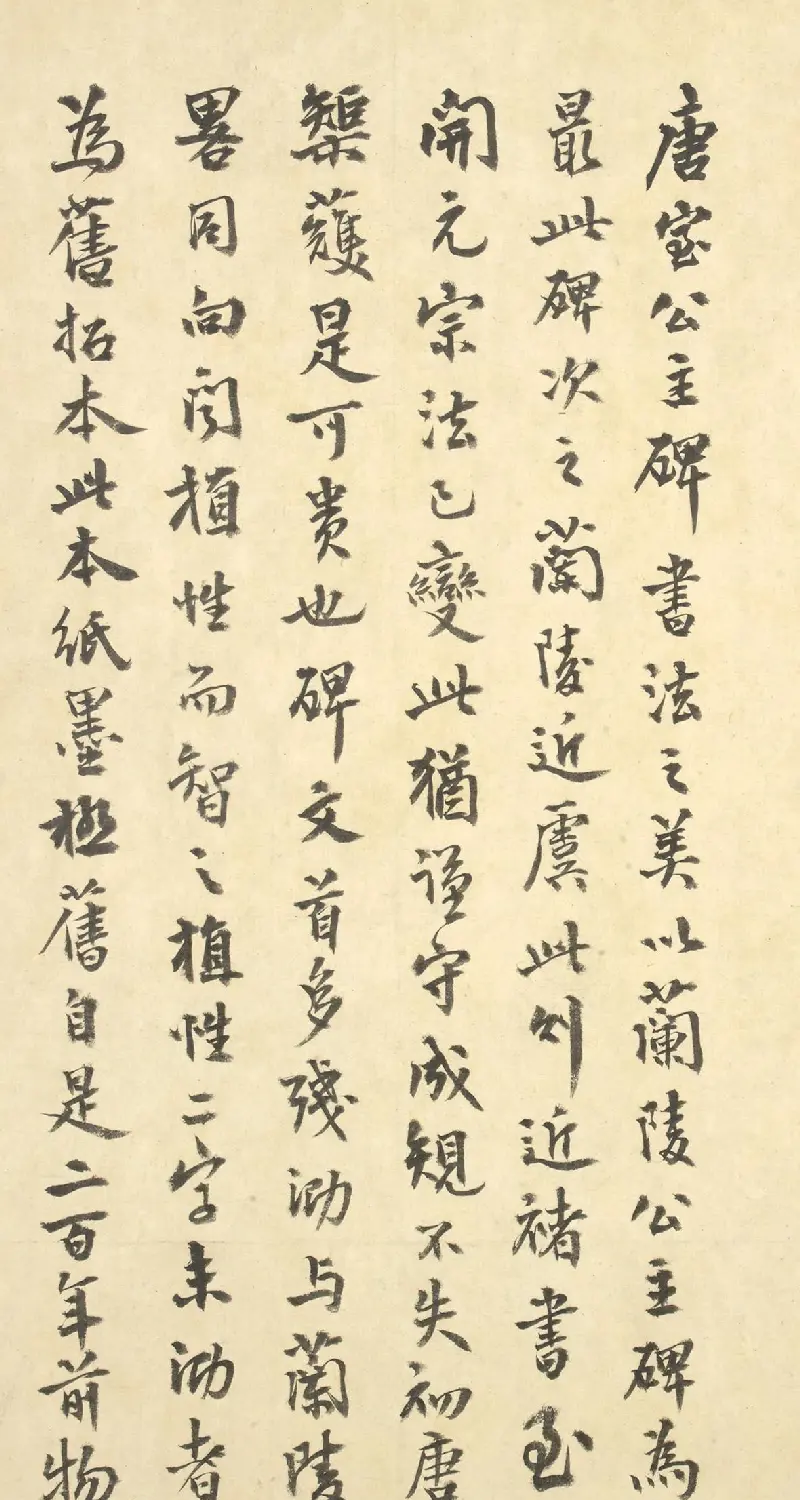 唐室公主碑書法之美以蘭陵公主碑為
最此碑次之蘭陵近虞此則近褚書至
開元宗法已變此猶謹守成規不失初唐
榘蒦是可貴也碑文首多殘泐与蘭陵
畧同向聞植性而智之植性二字未泐者
為舊拓本此本紙墨極舊自是二百年前物